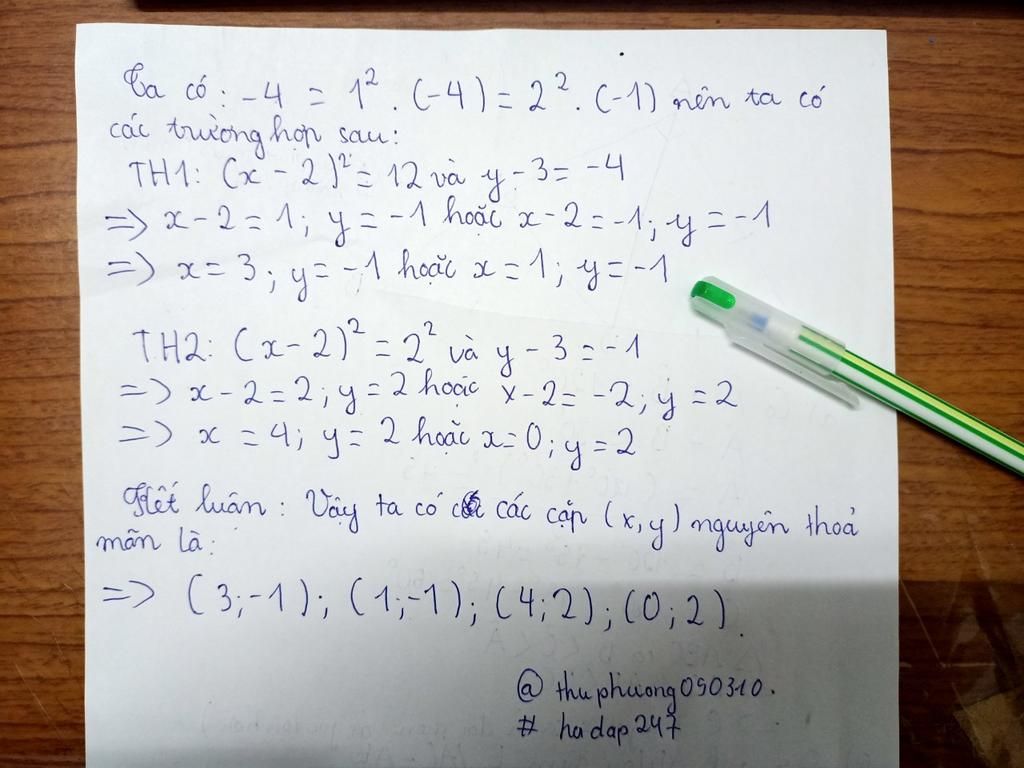 Ta có: -4 = 1². (-4) = 2². (-1) nên ta có
các trường hợp sau:
TH1: (x - 2)² = 12 và y - 3 = -4
=> x - 2 = 1; y = -1 hoặc x - 2 = -1; y = -1
=> x = 3; y = -1 hoặc x = 1; y = -1
TH2: (x - 2)² = 2² và y - 3 = -1
=> x - 2 = 2; y = 2 hoặc x - 2 = -2; y = 2
=> x = 4; y = 2 hoặc x = 0; y = 2
Kết luận: Vậy ta có các cặp (x, y) nguyên thoả
mãn là:
=> (3; -1); (1; -1); (4; 2); (0; 2).
@ thuphuong090310.
# hadap247